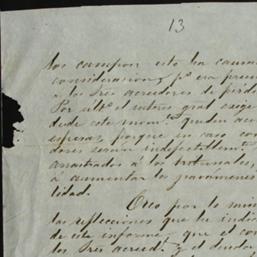 13
los campos esto ha causa
consideracion, pº era precis
a los Tres acreedores de perde
Por ultº el interes gral exige
desde este momtº queden ace
esperas, porque en caso con
dores serian indefectiblemte
arrastrados a los tribunales,
á aumentar los gravámenes
lidad.
Creo por lo mism
las reflecciones que he indic
de este informe, que el con
los Tres acreed.s y el deudor